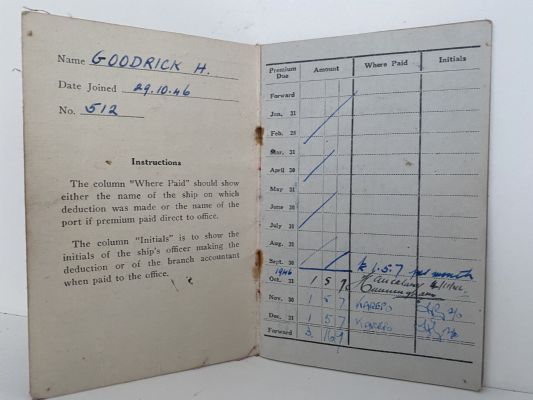 Name GOODRICK H.
Date Joined 29.10.46
No. 512
Instructions
The column "Where Paid" should show
either the name of the ship on which
deduction was made or the name of the
port if premium paid direct to office.
The column "Initials" is to show the
initials of the ship's officer making the
deduction or of the branch accountant
when paid to the office.
Premium Due Amount Where Paid Initials
Forward
Jan. 31
Feb. 28
Mar. 31
April 30
May 31
June 30
July 31
Aug. 31
Sept. 30 1.5.7 per month
1946
Oct. 31 1 5 7
Cunningham
Nov. 30 1 5 7 KAREPO
Dec. 31 1 5 7 KAREPO
Forward 3 16 9